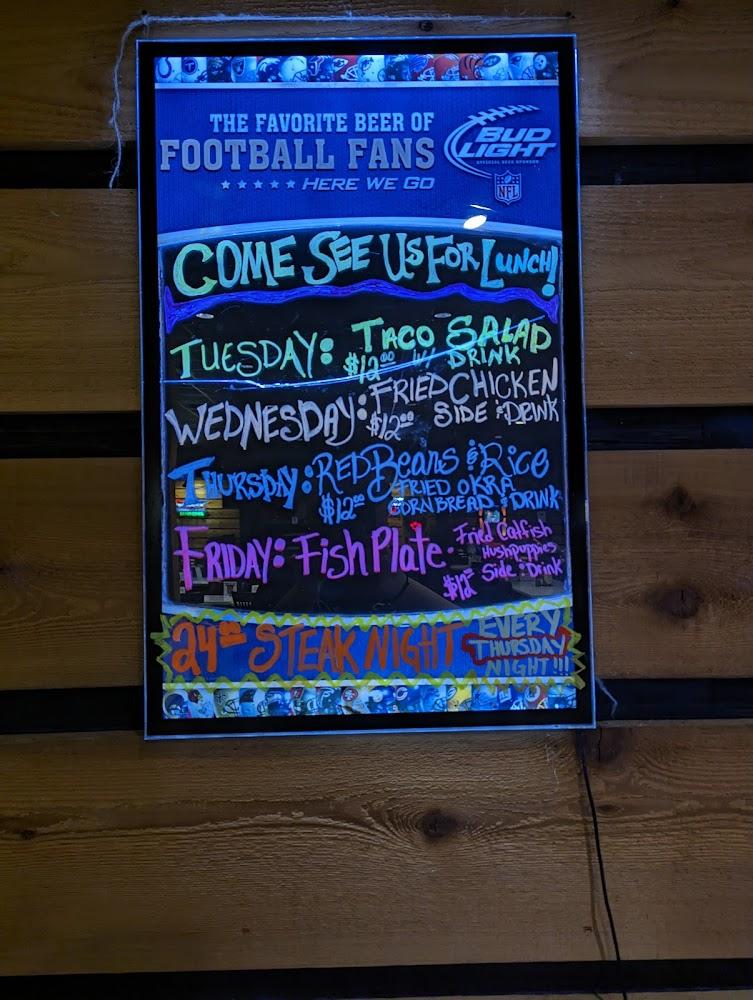 THE FAVORITE BEER OF
FOOTBALL FANS
HERE WE GO
BUD
LIGHT
OFFICIAL BEER SPONSOR
NFL
COME SEE US FOR LUNCH!
TUESDAY: TACO SALAD
$12.00 W/ DRINK
WEDNESDAY: FRIED CHICKEN
$12.00 SIDE & DRINK
THURSDAY: RED BEANS & RICE
FRIED OKRA
$12.00 CORNBREAD & DRINK
FRIDAY: FISH PLATE. Fried Catfish
Hushpuppies
$12 Side & Drink
24.00 STEAK NIGHT EVERY
THURSDAY
NIGHT!!!